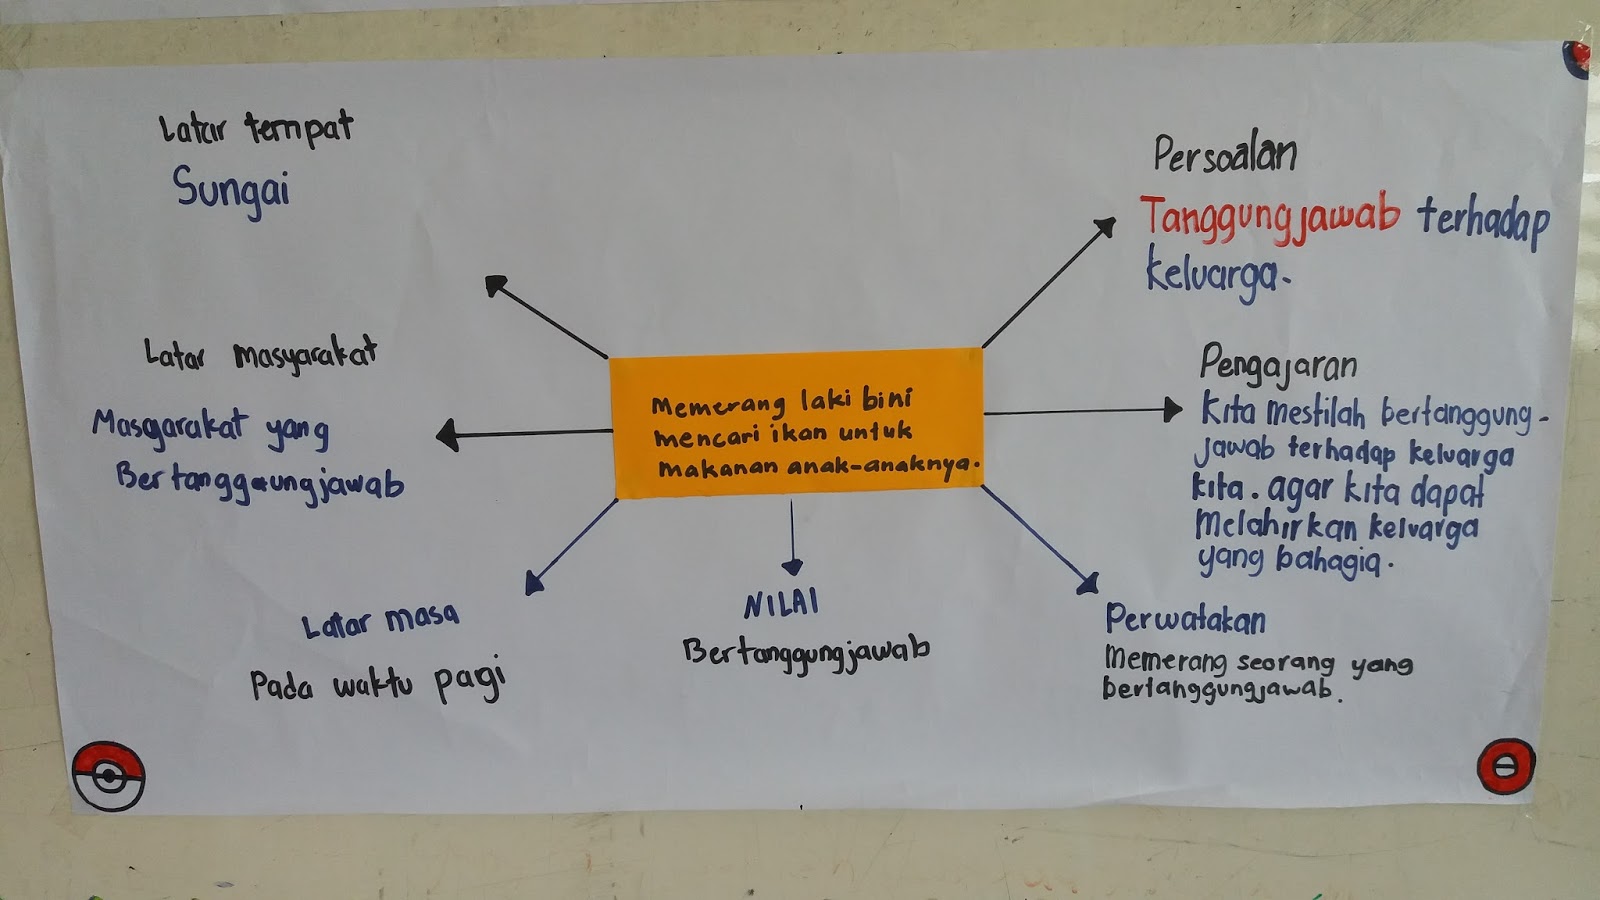 Latar tempat
Sungai
Latar masyarakat
Masyarakat yang
Bertanggungjawab
Latar masa
Pada waktu pagi
Memerang laki bini
mencari ikan untuk
makanan anak-anaknya.
NILAI
Bertanggungjawab
Persoalan
Tanggungjawab terhadap
keluarga.
Pengajaran
Kita mestilah bertanggung-
jawab terhadap keluarga
kita. agar kita dapat
melahirkan keluarga
yang bahagia.
Perwatakan
Memerang seorang yang
bertanggungjawab.